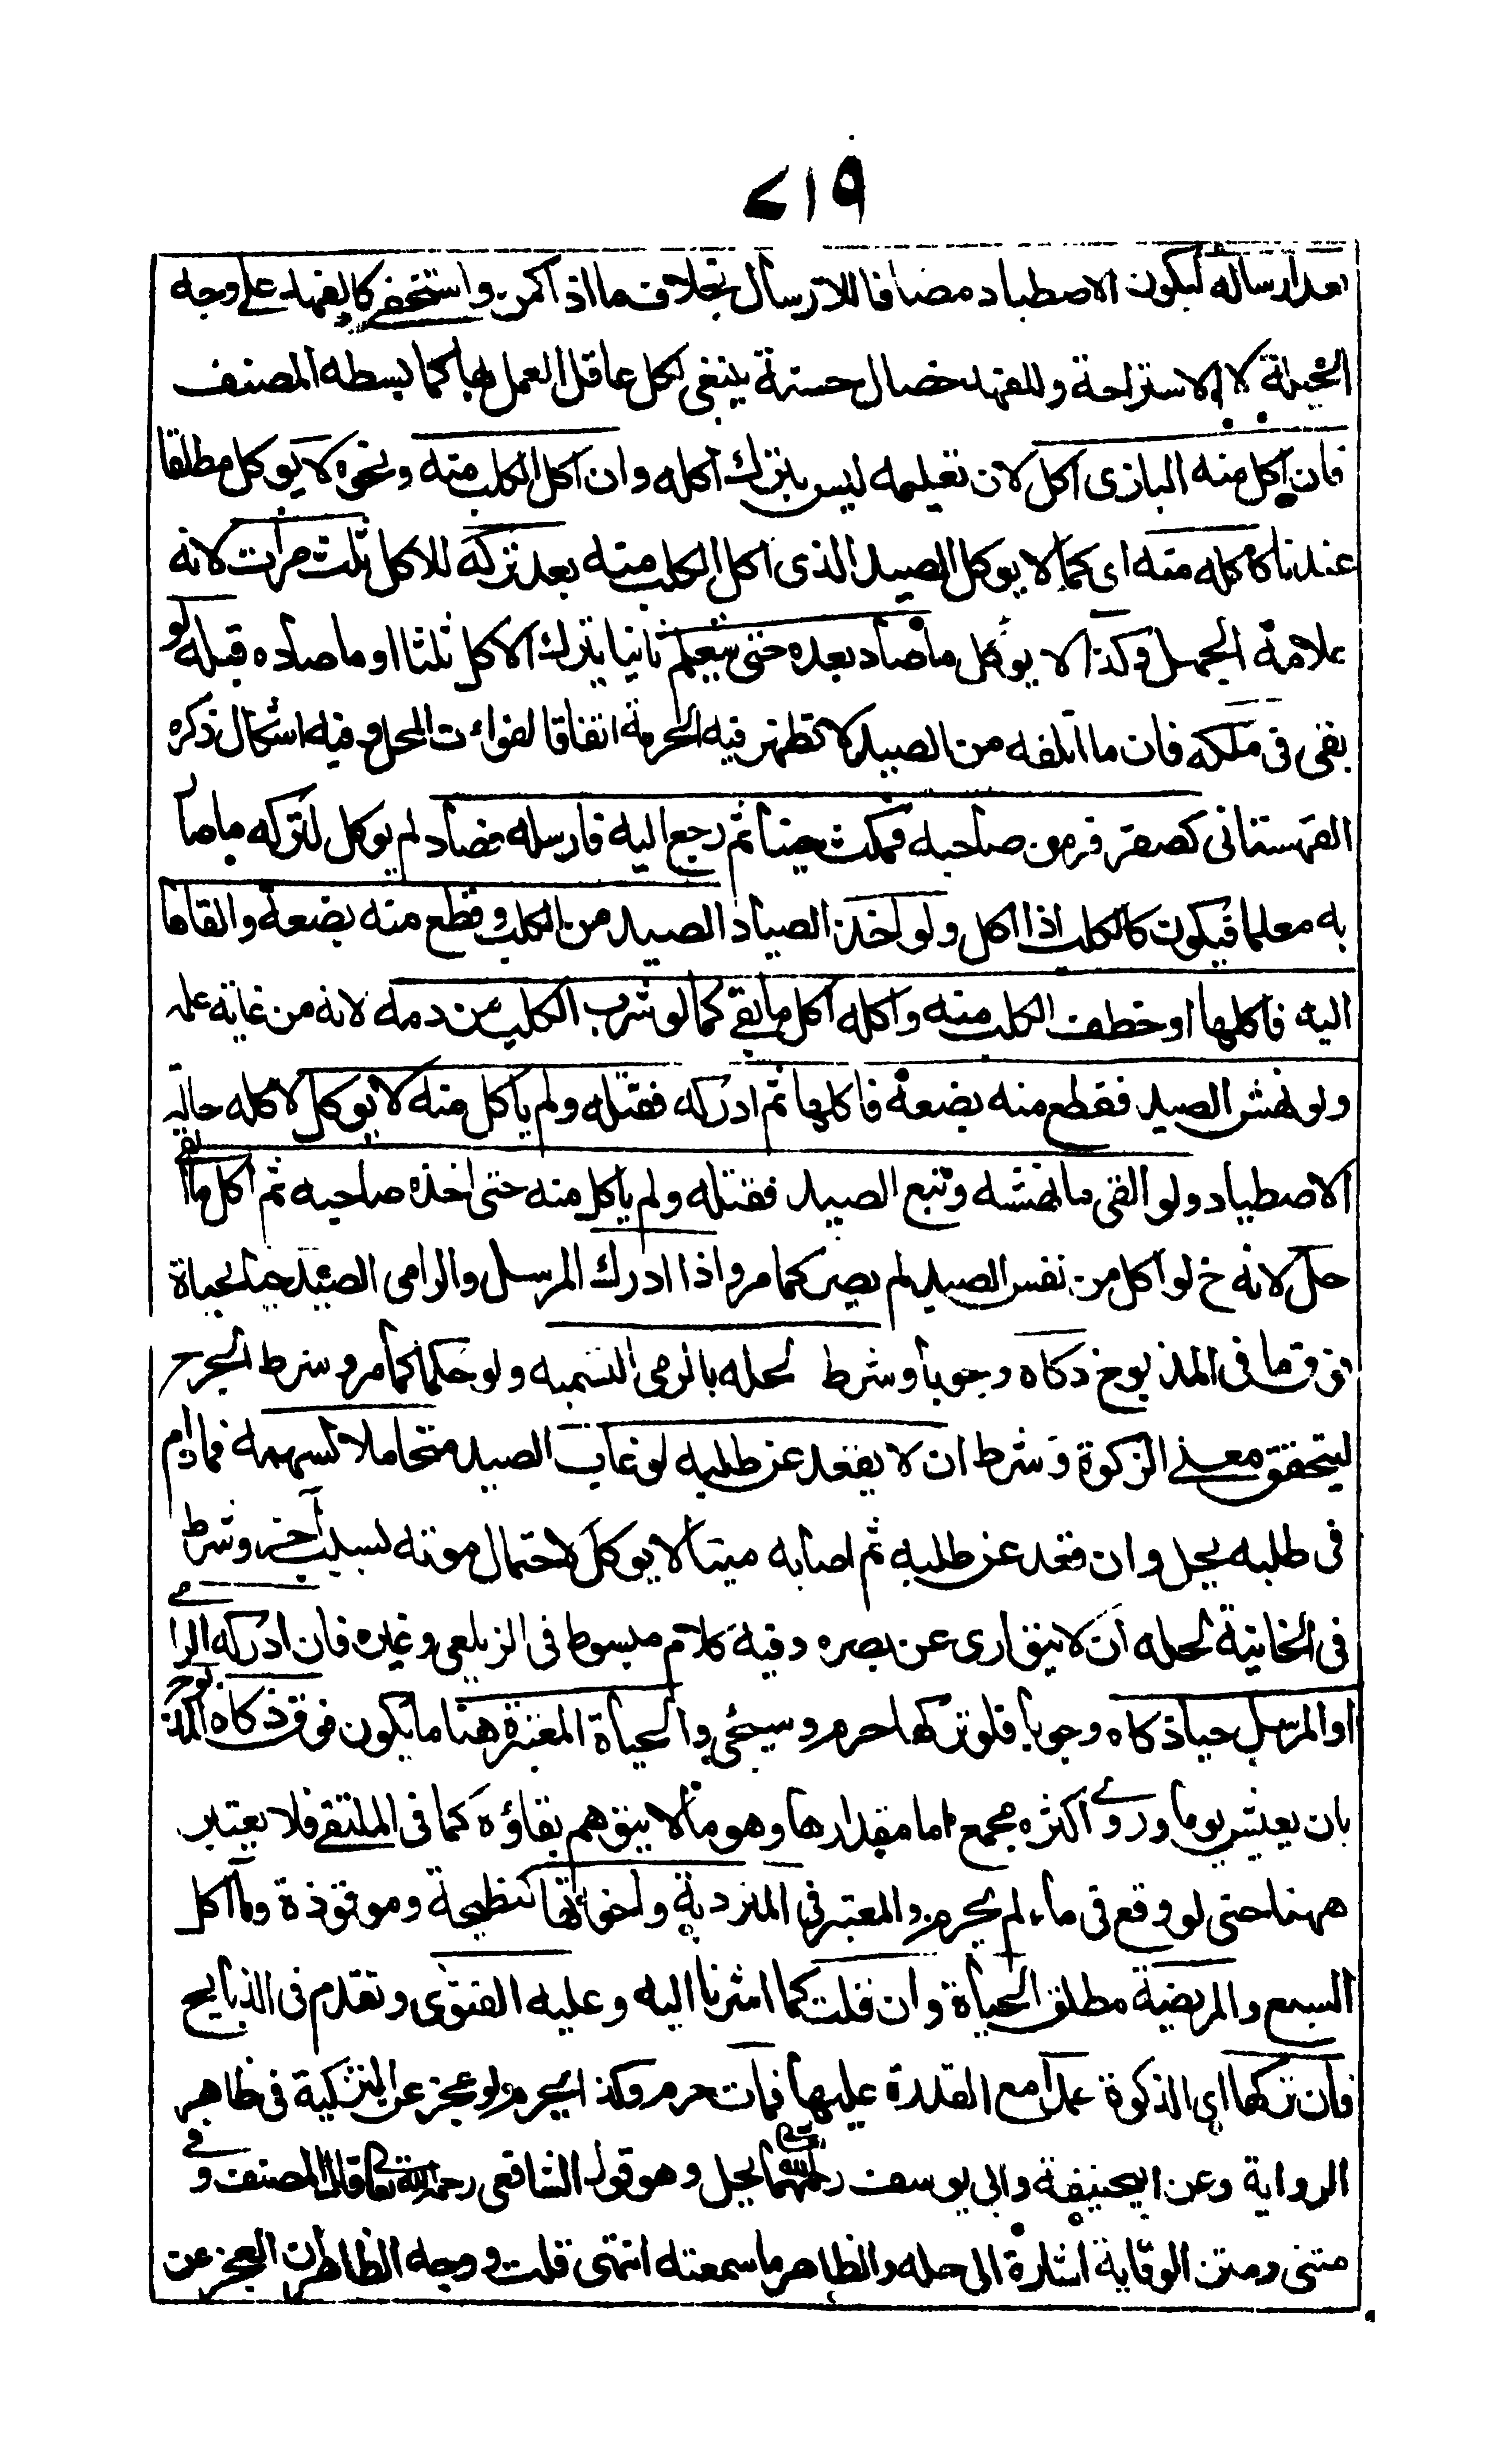 ٧١٩
بعد ارساله ليكون الاصطياد مضافا للارسال بخلاف ما اذا كمن واستخفى كالفهد على وجه
الحيلة لا الاستراحة وللفهد خصال حسنة ينبغى لكل عاقل العمل بها كما بسطه المصنف
فان اكل منه البازى اكل لان تعليمه ليس بترك اكله وان اكل الكلب منه ونحوه لا يوكل مطلقا
عندنا كاكله منه اى كما لا يوكل الصيد الذى اكل الكلب منه بعد تركه للاكل ثلث مرات لانه
علامة الجهل وكذا لا يوكل ما صاد بعده حتى يتعلم ثانيا بترك الاكل ثلثا او ما صاده قبله لو
بقى فى ملكه فان ما اتلفه من الصيد لا تظهر فيه الحرمة اتفاقا لفوات المحل وفيه اشكال ذكره
القهستانى كصقر فر من صاحبه فمكث حينا ثم رجع اليه فارسله فصاد لم يوكل لتركه ما صار
به معلما فيكون كالكلب اذا اكل ولو اخذ الصياد الصيد من الكلب وقطع منه بضعة والقاها
اليه فاكلها او خطف الكلب منه واكله اكل ما بقى كما لو شرب الكلب من دمه لانه من غاية علمه
ولو نهش الصيد فقطع منه بضعة فاكلها ثم ادركه فقتله ولم ياكل منه لا يوكل لاكله حالة
الاصطياد ولو القى ما نهشه وتبع الصيد فقتله ولم ياكل منه حتى اخذه صاحبه ثم اكل ما القى
حل لانه ح لو اكل من نفس الصيد لم يضر كما مر واذا ادرك المرسل والرامى الصيد حيا لحياة
فوق ما فى المذبوح ذكاه وجوبا وشرط لحله بالرمى التسمية ولو حكما كما مر وشرط الجرح
ليتحقق معنى الزكوة وشرط ان لا يقعد عن طلبه لو غاب الصيد متحاملا لسهمه فما دام
فى طلبه يحل وان قعد عن طلبه ثم اصابه ميتا لا يوكل لاحتمال موته بسبب آخر وشرط
فى الخانية لحله ان لا يتوارى عن بصره وفيه كلام مبسوط فى الزيلعى وغيره فان ادركه الرامى
او المرسل حيا ذكاه وجوبا فلو تركها حرم وسيجئ والحياة المعتبرة هنا ما يكون فوق ذكاه المذبوح
بان يعيش يوما وروى اكثره مجمع اما مقدارها وهو ما لا يتوهم بقاؤه كما فى الملتقى فلا يعتبر
ههنا حتى لو وقع فى ماء لم يحرم والمعتبر فى المتردية واخواتها كنطيحة وموقوذة وما اكل
السبع والمريضة مطلق الحياة وان قلت كما اشرنا اليه وعليه الفتوى وتقدم فى الذبايح
فان تركها اى الذكوة عمدا مع القدرة عليها فمات حرم وكذا يحرم لو عجز عن التذكية فى ظاهر
الرواية وعن ابيحنيفة وابى يوسف رحمهما الله تعالى يحل وهو قول الشافعى رحمه الله تعا قال المصنف وفى
متنى ومتن الوقاية اشارة الى حله والظاهر ما سمعته انتهى قلت ووجه الظاهر ان العجز عن